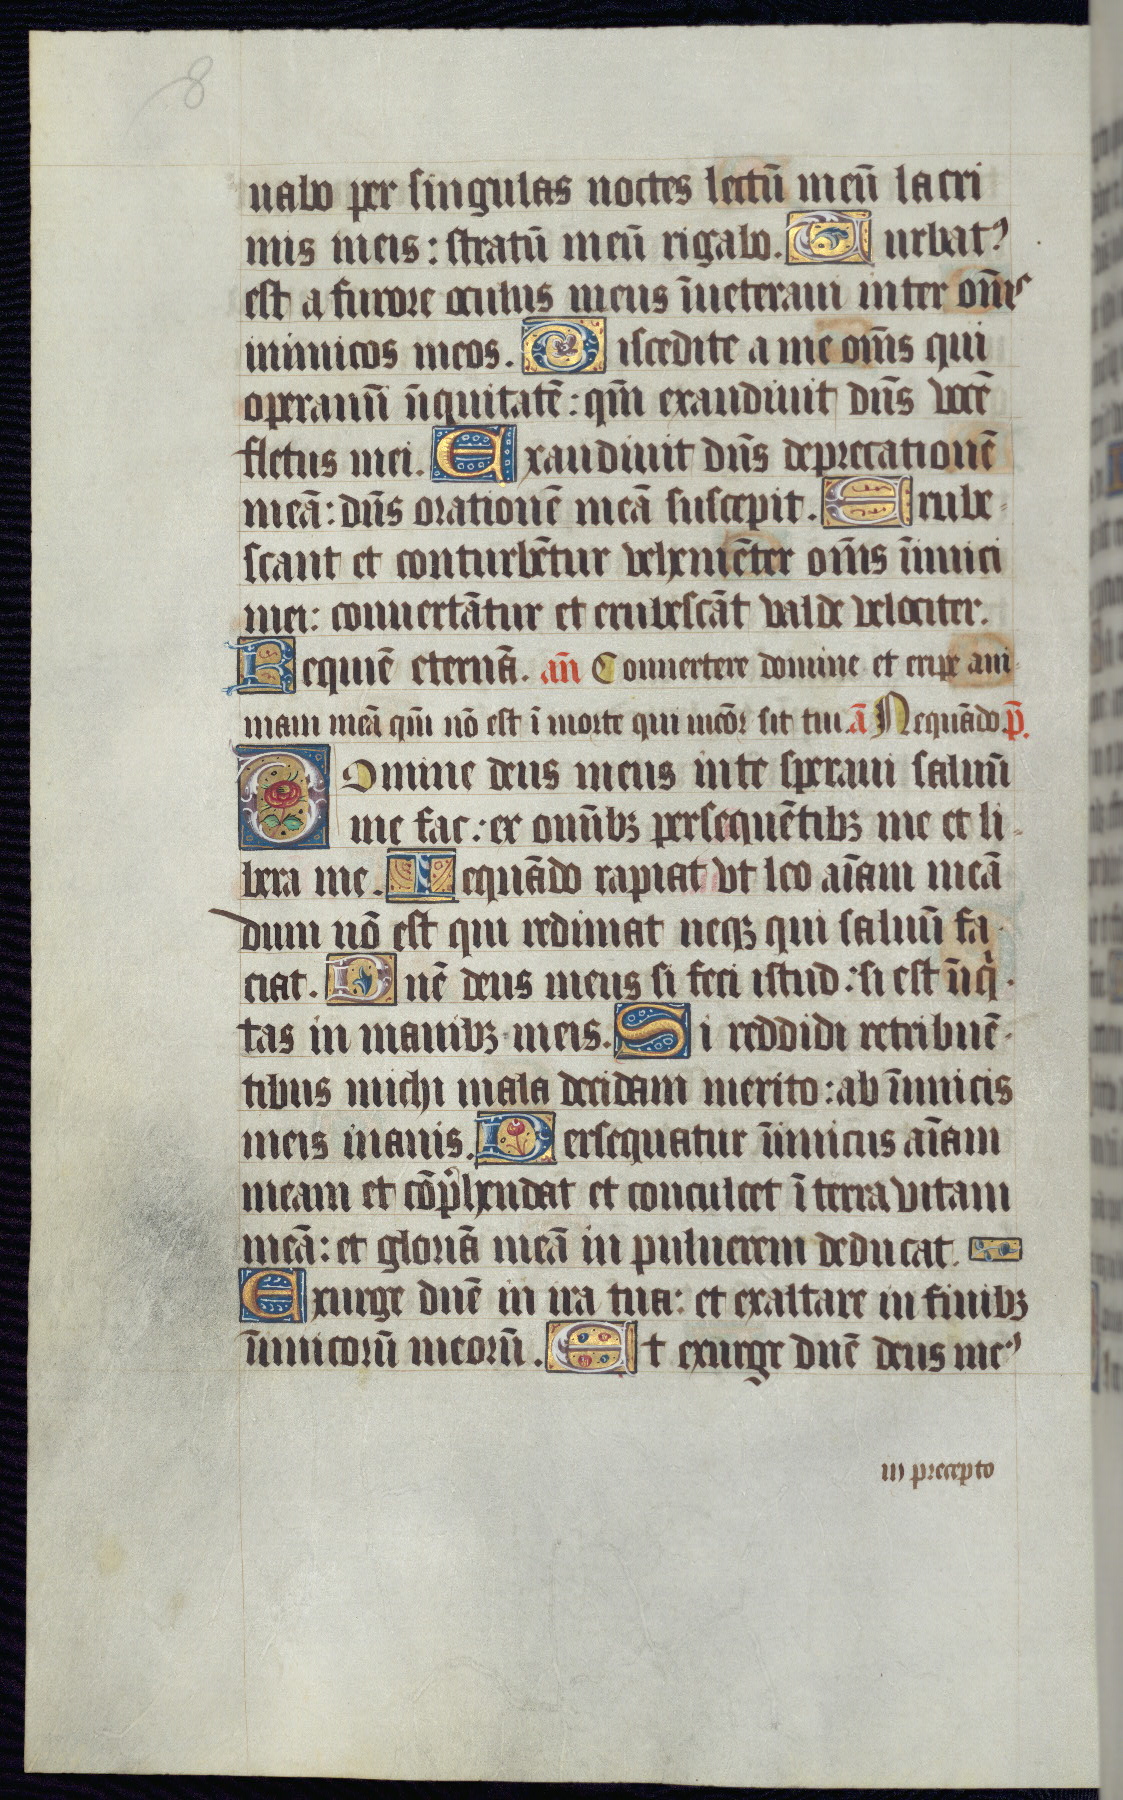 8
uabo per singulas noctes lectū meū lacri
mis meis: stratū meū rigabo. Turbat᾽
est a furore oculus meus īueteraui inter om̄s
inimicos meos. Discedite a me om̄s qui
operamī īiquitatē: qm̄ exaudiuit dn̄s vocē
fletus mei. Exaudiuit dn̄s deprecationē
meā: dn̄s orationē meā suscepit. Erube-
scant et conturbētur vehemēter om̄s īimici
mei: conuertātur et erubescāt valde velociter.
Requiē eternā. an̄ Conuertere domine et eripe ani-
mam meā qm̄ nō est ī morte qui mēor sit tui. ā Nequādo. p̄.
Domine deus meus in te speraui saluū
me fac: ex omībꝫ persequētibꝫ me et li-
bera me. Nequādo rapiat vt leo aīam meā
dum nō est qui redimat neqꝫ qui saluū fa-
ciat. Dn̄e deus meus si feci istud: si est īiqi-
tas in manibꝫ meis. Si reddidi retribuē-
tibus michi mala decidam merito: ab īimicis
meis inanis. Persequatur īimicus aīam
meam et cōprehendat et conculcet ī terra vitam
meā: et gloriā meā in puluerem deducat.
Exurge dn̄e in ira tua: et exaltare in finibꝫ
īimicorū meorū. Et exurge dn̄e deus me᾽
in precepto